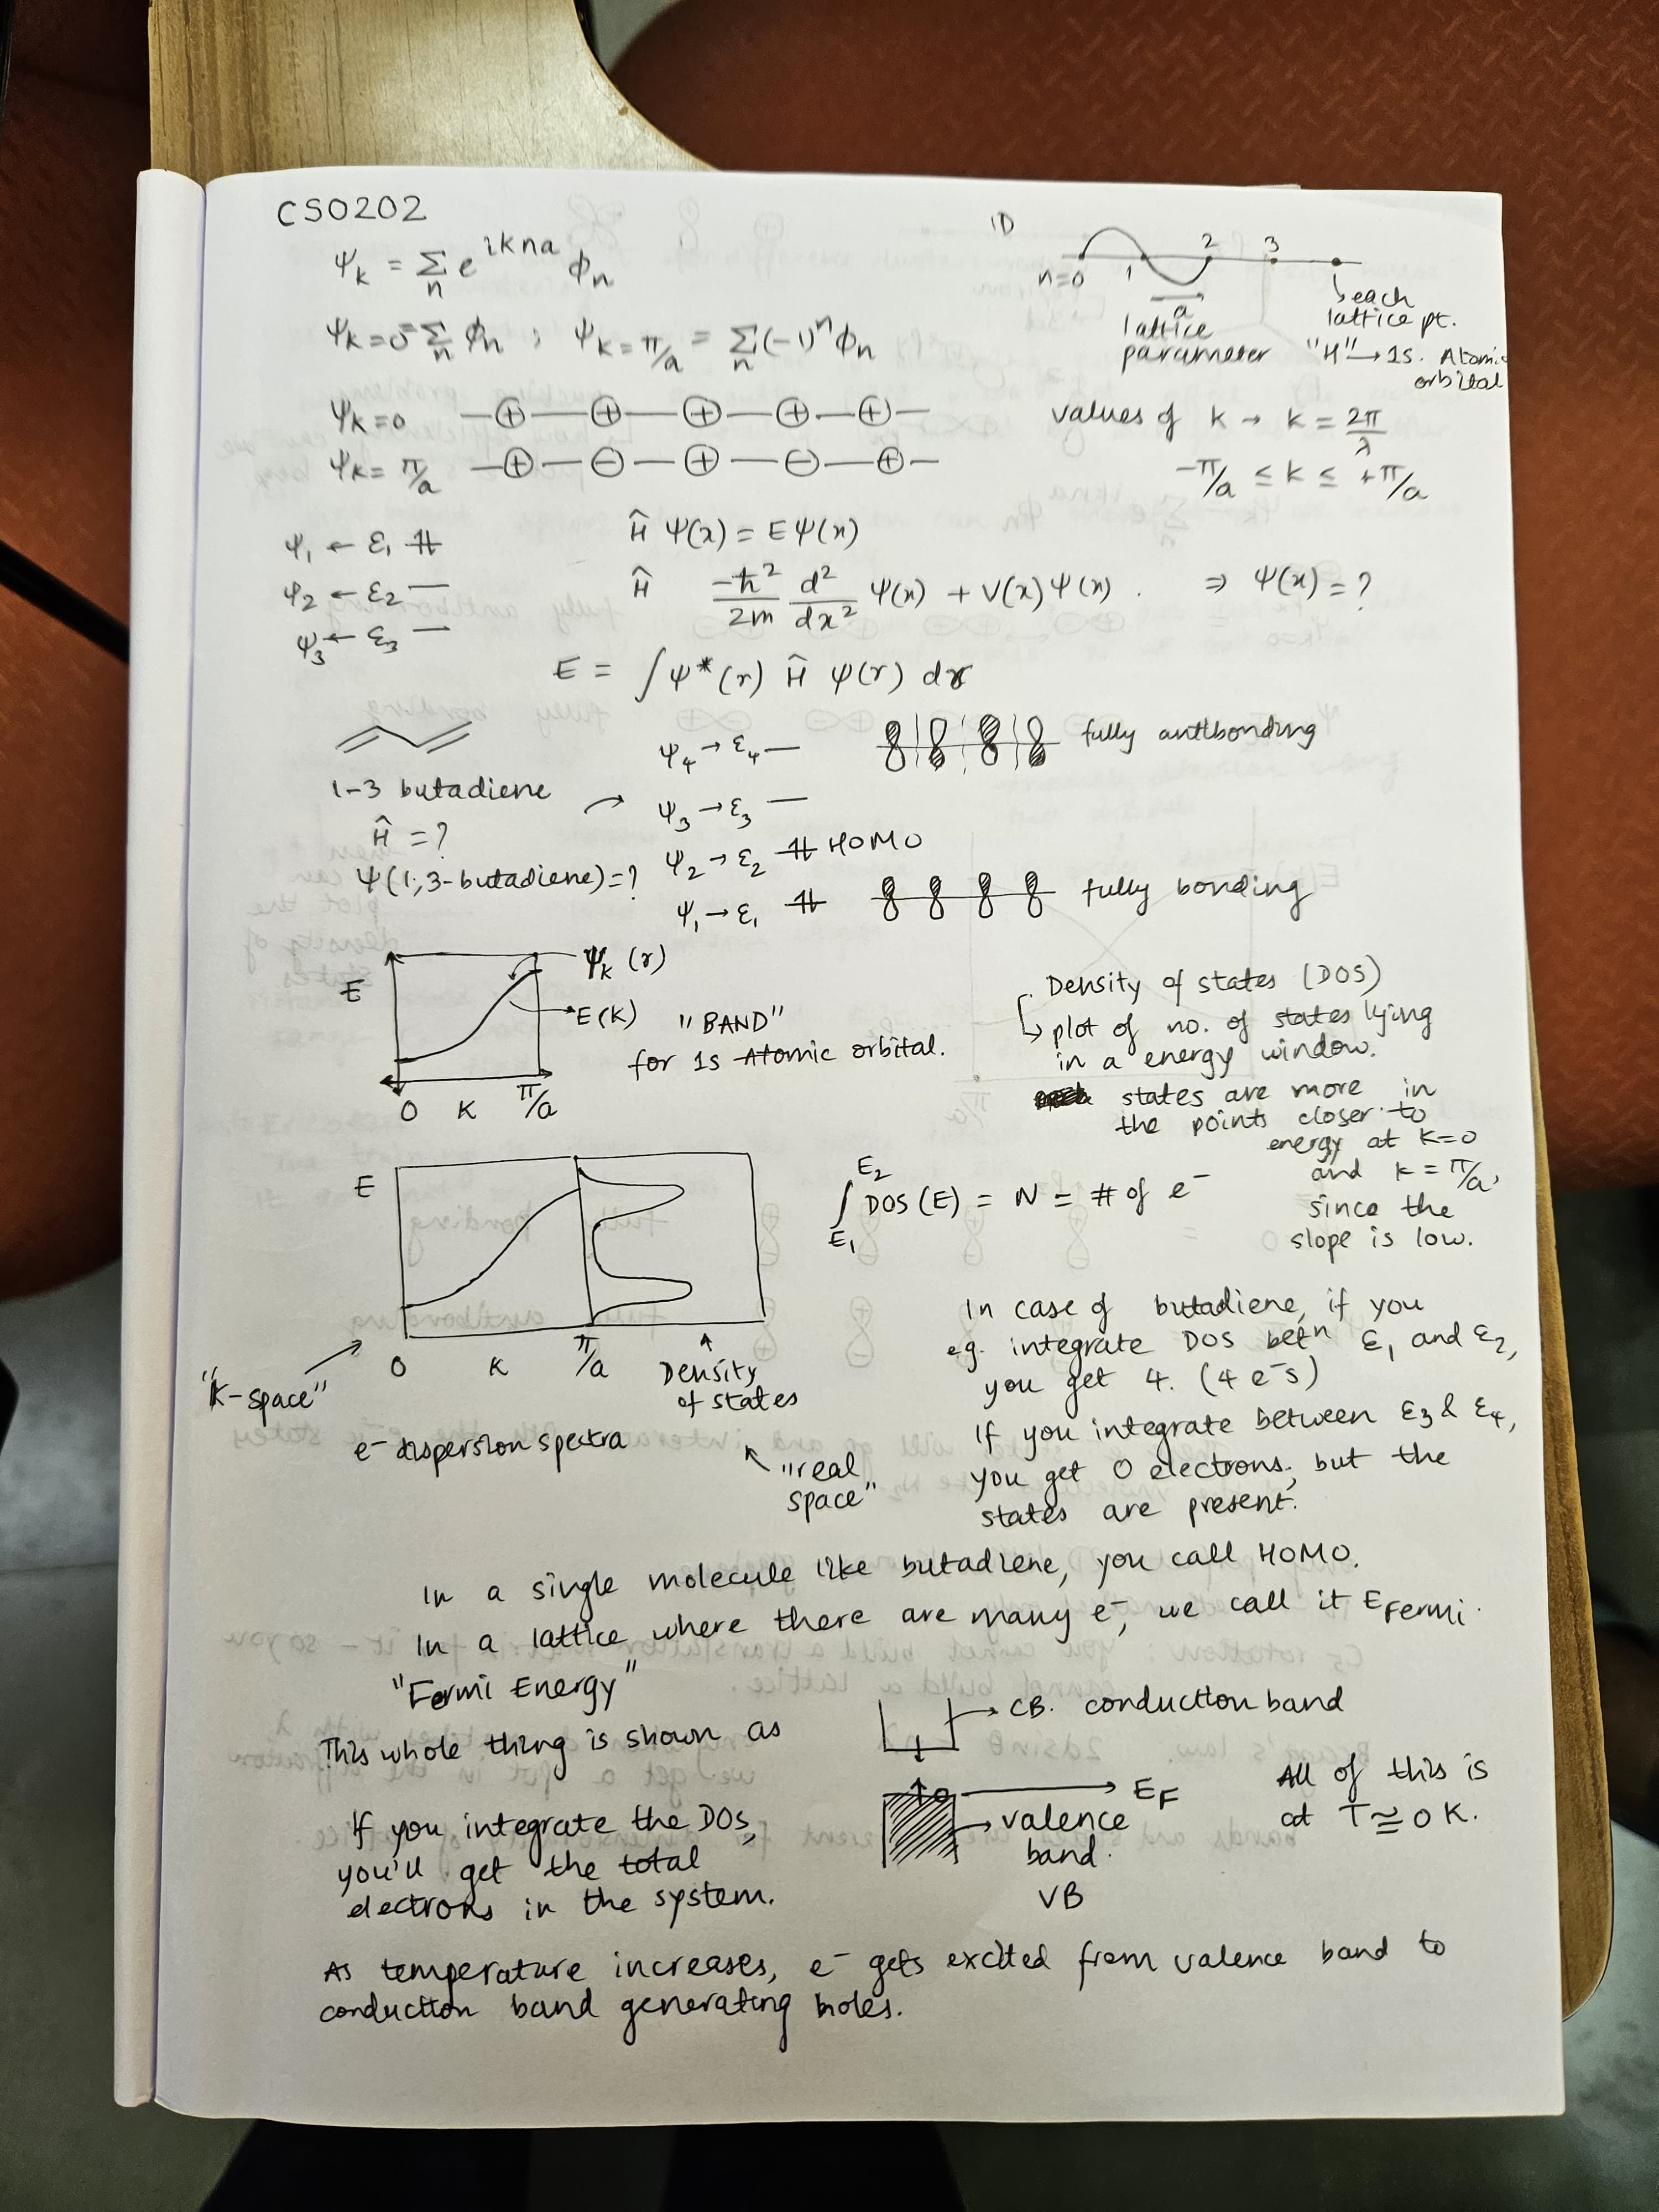 CSO202
Ψk = Σn e^ikna ϕn
Ψk=0 = Σn ϕn ; Ψk=π/a = Σn (-1)^n ϕn
1D
n=0 1 2 3
a
lattice
parameter
each
lattice pt.
"H" → 1s. Atomic
orbital
Ψk=0 —(+)—(+)—(+)—(+)—(+)—
Ψk=π/a —(+)—(−)—(+)—(−)—(+)—
values of k → k = 2π/λ
-π/a ≤ k ≤ +π/a
Ψ1 ← ε1
Ψ2 ← ε2 —
Ψ3 ← ε3 —
Ĥ Ψ(x) = E Ψ(x)
Ĥ -ħ²/2m d²/dx² Ψ(x) + V(x)Ψ(x) . ⇒ Ψ(x) = ?
E = ∫ Ψ*(r) Ĥ Ψ(r) dr
1-3 butadiene
Ĥ = ?
Ψ(1,3-butadiene)=?
Ψ4 → ε4 — fully antibonding
Ψ3 → ε3 —
Ψ2 → ε2 HOMO
Ψ1 → ε1 fully bonding
E
Ψk (r)
E(K)
0 K π/a
"BAND"
for 1s Atomic orbital.
Density of states (DOS)
↳ plot of no. of states lying
in a energy window.
states are more in
the points closer to
energy at K=0
and k = π/a,
since the
slope is low.
E
0 K π/a
Density
of states
"K-space"
e⁻ dispersion spectra
"real
space"
∫E1^E2 DOS (E) = N = # of e⁻
In case of butadiene, if you
e.g. integrate DOS betn ε1 and ε2,
you get 4. (4 e⁻s)
If you integrate between ε3 & ε4,
you get 0 electrons, but the
states are present.
In a single molecule like butadiene, you call HOMO.
In a lattice where there are many e⁻, we call it EFermi.
"Fermi Energy"
This whole thing is shown as
CB. conduction band
EF
valence
band.
VB
All of this is
at T ≅ 0 K.
If you integrate the DOS,
you'll get the total
electrons in the system.
As temperature increases, e⁻ gets excited from valence band to
conduction band generating holes.